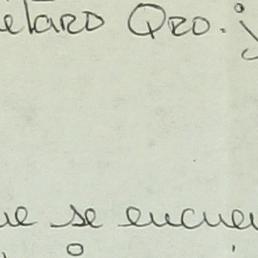 etaro Qro. y
ue se encuen